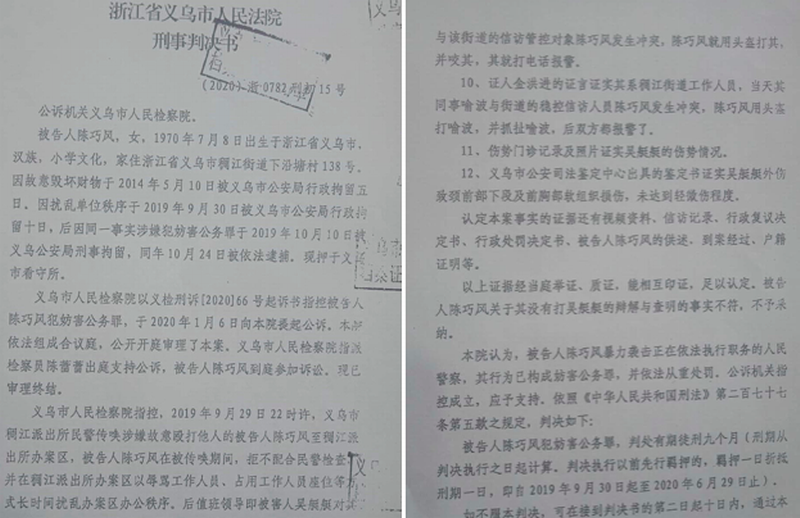 浙江省义乌市人民法院
刑事判决书
(2020)浙0782刑初15号
公诉机关义乌市人民检察院。
被告人陈巧风,女,1970年7月8日出生于浙江省义乌市,
汉族,小学文化,家住浙江省义乌市稠江街道下沿塘村138号。
因故意毁坏财物于2014年5月10日被义乌市公安局行政拘留五
日。因扰乱单位秩序于2019年9月30日被义乌市公安局行政拘
留十日,后因同一事实涉嫌犯妨害公务罪于2019年10月10日被
义乌公安局刑事拘留,同年10月24日被依法逮捕。现押于义
市看守所。
义乌市人民检察院以义检刑诉[2020]66号起诉书指控被告人
陈巧风犯妨害公务罪,于2020年1月6日向本院提起公诉。本
依法组成合议庭,公开开庭审理了本案。义乌市人民检察院指派
检察员陈蕾蕾出庭支持公诉,被告人陈巧风到庭参加诉讼。现已
审理终结。
义乌市人民检察院指控,2019年9月29日22时许,义乌市
稠江派出所民警传唤涉嫌故意殴打他人的被告人陈巧风至稠江派
出所办案区,被告人陈巧风在被传唤期间,拒不配合民警检查
并在稠江派出所办案区以辱骂工作人员、占用工作人员座位等方
式长时间扰乱办案区办公秩序。后值班领导即被害人吴艇艇对其
与该街道的信访管控对象陈巧风发生冲突,陈巧风就用头撞打其,
并咬其,其就打电话报警。
10、证人金洪进的证言证实其系稠江街道工作人员,当天其
同事喻波与街道的稳控信访人员陈巧风发生冲突,陈巧风用头撞
打喻波,并抓扯喻波,后双方都报警了。
11、伤势门诊记录及照片证实吴艇艇的伤势情况。
12、义乌市公安司法鉴定中心出具的鉴定书证实吴艇艇外伤
致颈前部下段及前胸部软组织损伤,未达到轻微伤程度。
认定本案事实的证据还有视频资料、信访记录、行政复议决
定书、行政处罚决定书、被告人陈巧风的供述、到案经过、户籍
证明等。
以上证据经当庭举证、质证,能相互印证,足以认定。被告
人陈巧风关于其没有打吴艇艇的辩解与查明的事实不符,不予采
纳。
本院认为,被告人陈巧风暴力袭击正在依法执行职务的人民
警察,其行为已构成妨害公务罪,并依法从重处罚。公诉机关指
控成立,应予支持。依照《中华人民共和国刑法》第二百七十七
条第五款之规定,判决如下:
被告人陈巧风犯妨害公务罪,判处有期徒刑九个月(刑期从
判决执行之日起计算。判决执行以前先行羁押的,羁押一日折抵
刑期一日,即自2019年9月30日起至2020年6月29日止)。
如不服本判决,可在接到判决书的第二日起十日内,通过本